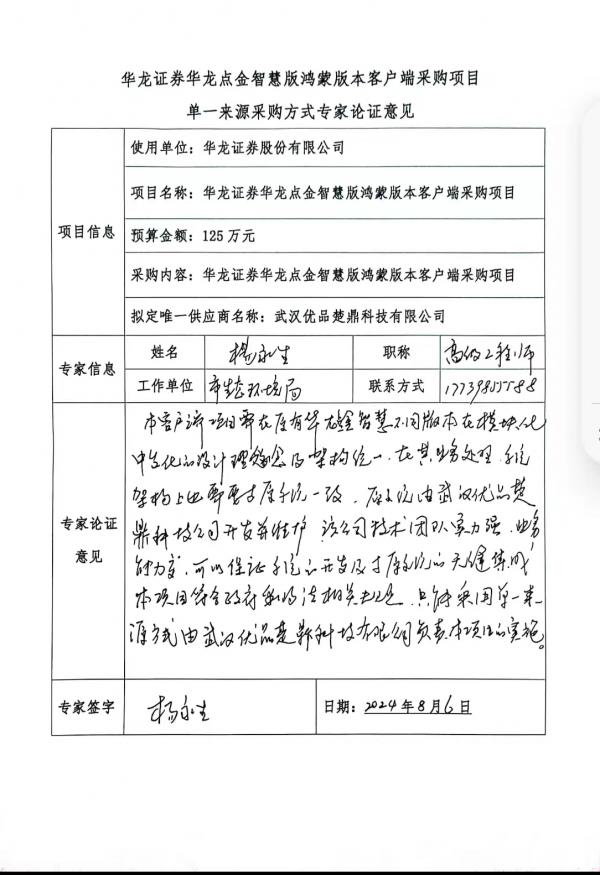 华龙证券华龙点金智慧版鸿蒙版本客户端采购项目
单一来源采购方式专家论证意见
项目信息
使用单位：华龙证券股份有限公司
项目名称：华龙证券华龙点金智慧版鸿蒙版本客户端采购项目
预算金额：125万元
采购内容：华龙证券华龙点金智慧版鸿蒙版本客户端采购项目
拟定唯一供应商名称：武汉优品楚鼎科技有限公司
专家信息
姓名
杨永生
职称
高级工程师
工作单位
市生态环境局
联系方式
17739855588
专家论证
意见
本客户端项目要在原有华龙点金智慧不同版本在模块化
中台化的设计理念及架构统一，在其业务处理、系统
架构上也要要与原系统一致，原系统由武汉优品楚
鼎科技公司开发并维护，该公司技术团队实力强，业务
能力高，可以保证系统的开发及与原系统的无缝集成，
本项目符合政府采购法相关规定，只能采用单一来
源方式由武汉优品楚鼎科技有限公司负责本项目的实施。
专家签字
杨永生
日期：2024年8月6日